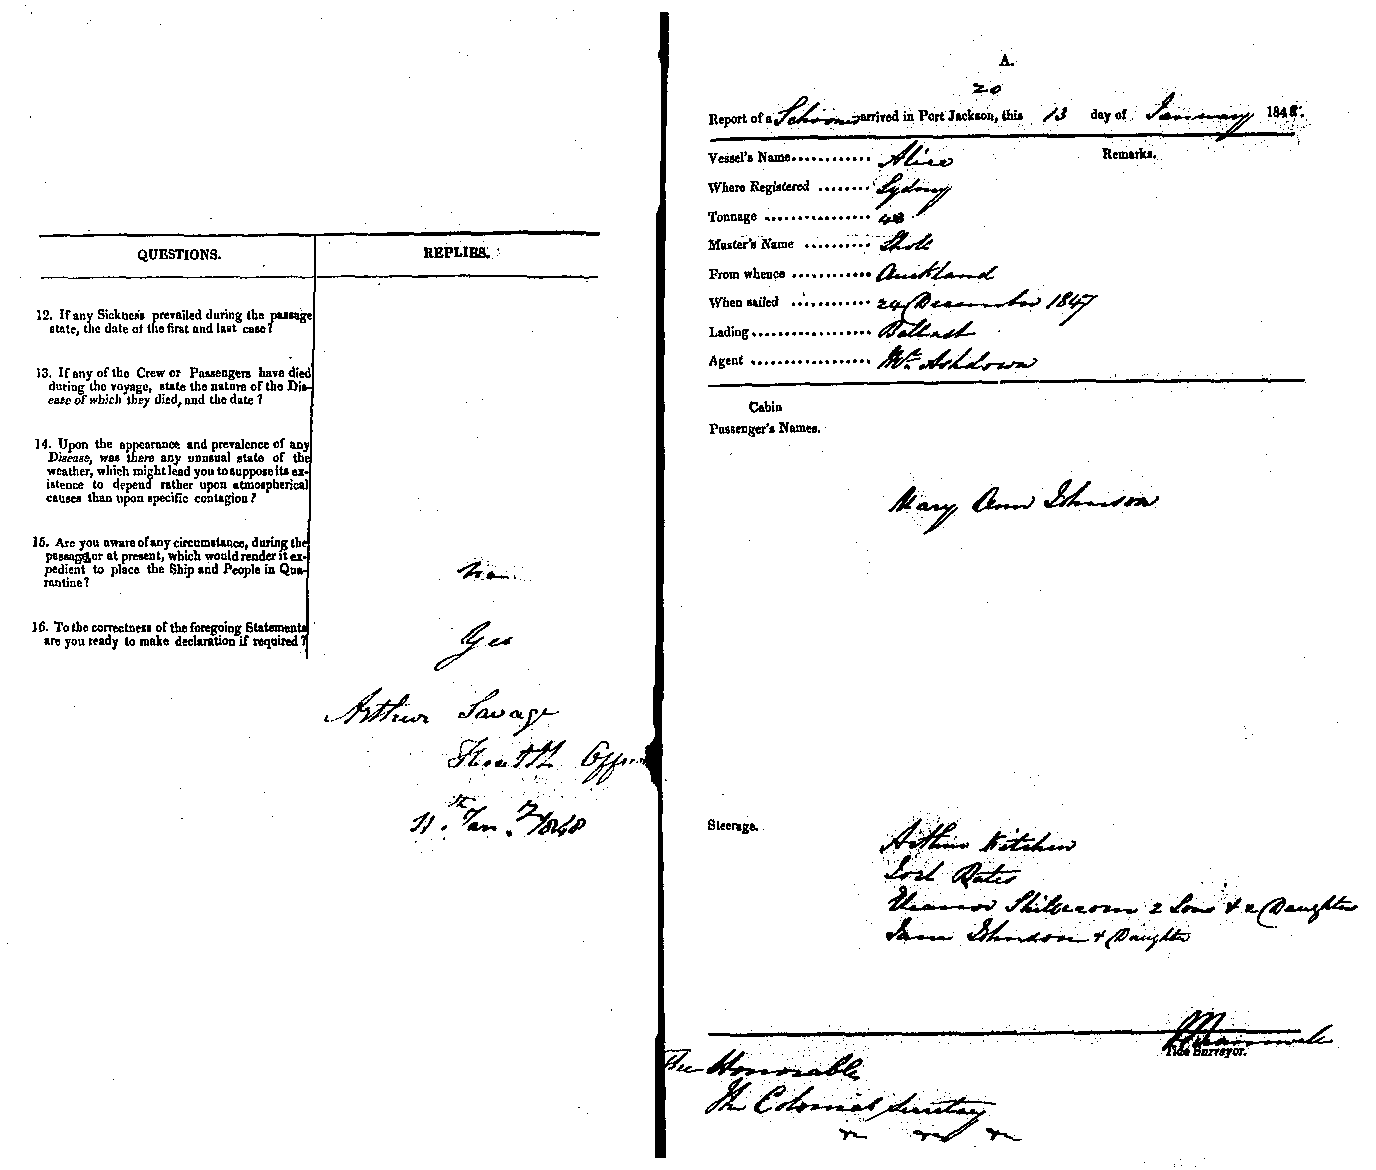 QUESTIONS.
REPLIES.
12. If any Sickness prevailed during the passage
state, the date of the first and last case?
13. If any of the Crew or Passengers have died
during the voyage, state the nature of the Dis-
ease of which they died, and the date?
14. Upon the appearance and prevalence of any
Disease, was there any unusual state of the
weather, which might lead you to suppose its ex-
istence to depend rather upon atmospherical
causes than upon specific contagion?
15. Are you aware of any circumstance, during the
passage, or at present, which would render it ex-
pedient to place the Ship and People in Qua-
rantine?
16. To the correctness of the foregoing Statements
are you ready to make declaration if required?
Yes
Arthur Savage
Health Officer
Jany. 1848
A.
20
Report of a Schooner arrived in Port Jackson, this 13 day of January 1848.
Vessel's Name............ Alice
Remarks.
Where Registered ........ Sydney
Tonnage ................ 48
Master's Name ..........
From whence ............ Auckland
When sailed ............ 24 December 1847
Lading.................. Ballast
Agent .................. Mr. Ashdown
Cabin
Passenger's Names.
Mary Ann Johnson
Steerage.
Arthur Kitchen
Bates
Eleanor 2 Sons & 2 Daughters
Jane Johnson & Daughter
Tide Surveyor.
The Honorable
The Colonial Secretary